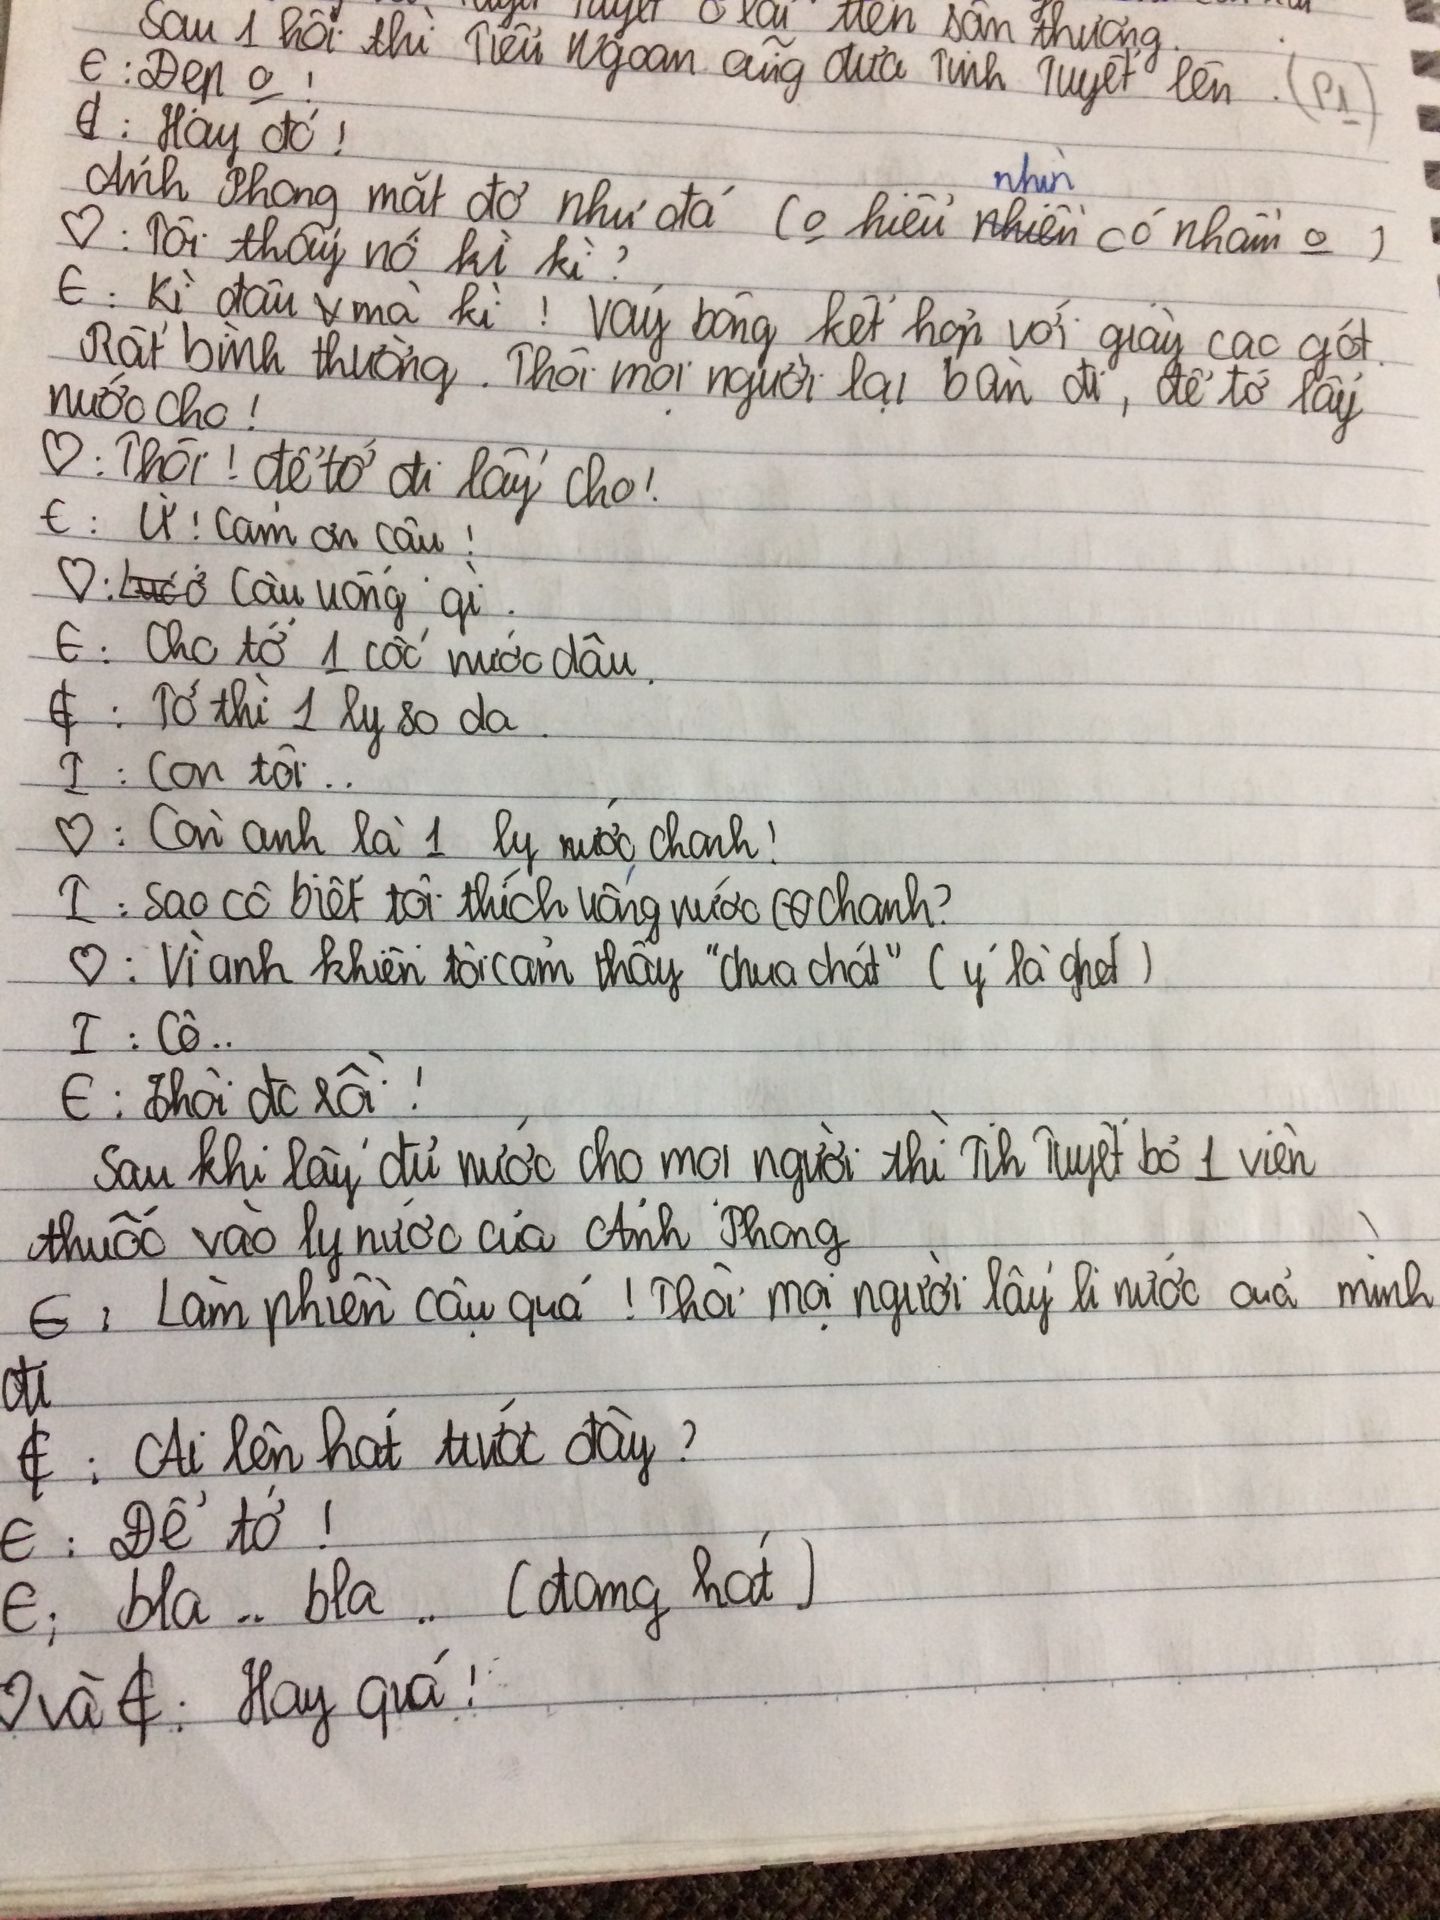 ở lại trên sân thượng.
Sau 1 hồi thì Tiểu Ngoan cũng đưa Tinh Tuyết lên. (P1)
€ : Đẹp o !
₵ : Hay đó !
Anh Phong mặt đơ như đá (o hiểu nhiền nhìn có nhầm o )
♡ : Tôi thấy nó kì kì ?
€ : Kì đâu v mà kì ! Váy bông kết hợp với giày cao gót.
Rất bình thường. Thôi mọi người lại bàn đi, để tớ lấy
nước cho !
♡ : Thôi ! để tớ đi lấy cho !
€ : Ừ ! Cảm ơn cậu !
♡ : Cậu uống gì .
€ : Cho tớ 1 cốc nước dâu.
₵ : Tớ thì 1 ly so da .
I : Còn tôi ..
♡ : Còn anh là 1 ly nước chanh !
I : Sao cô biết tôi thích uống nước chanh ?
♡ : Vì anh khiến tôi cảm thấy "chua chát" ( ý là ghét )
I : Cô ..
€ : Thôi đc rồi !
Sau khi lấy đủ nước cho mọi người thì Tih Tuyết bỏ 1 viên
thuốc vào ly nước của Anh Phong
€ : Làm phiền cậu quá ! Thôi mọi người lấy li nước của mình
đi
₵ : Ai lên hát trước đây ?
€ : Để tớ !
€ ; bla .. bla .. (đang hát)
♡ và ₵ : Hay quá !